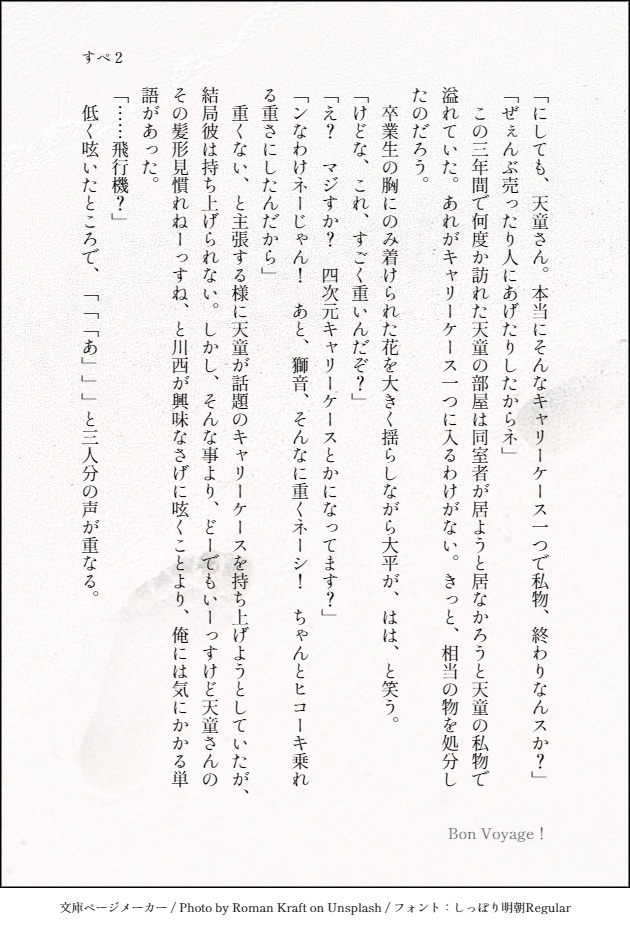 すぺ2
「にしても、天童さん。本当にそんなキャリーケース一つで私物、終わりなんスか?」
「ぜぇんぶ売ったり人にあげたりしたからネ」
　この三年間で何度か訪れた天童の部屋は同室者が居ようと居なかろうと天童の私物で
溢れていた。あれがキャリーケース一つに入るわけがない。きっと、相当の物を処分し
たのだろう。
　卒業生の胸にのみ着けられた花を大きく揺らしながら大平が、はは、と笑う。
「けどな、これ、すごく重いんだぞ?」
「え?　マジすか?　四次元キャリーケースとかになってます?」
「ンなわけネーじゃん!　あと、獅音、そんなに重くネーシ!　ちゃんとヒコーキ乗れ
る重さにしたんだから」
　重くない、と主張する様に天童が話題のキャリーケースを持ち上げようとしていたが、
結局彼は持ち上げられない。しかし、そんな事より、どーでもいーっすけど天童さんの
その髪形見慣れねーっすね、と川西が興味なさげに呟くことより、俺には気にかかる単
語があった。
「……飛行機?」
　低く呟いたところで、「「「あ」」」と三人分の声が重なる。
Bon Voyage!
文庫ページメーカー / Photo by Roman Kraft on Unsplash / フォント:しっぽり明朝Regular